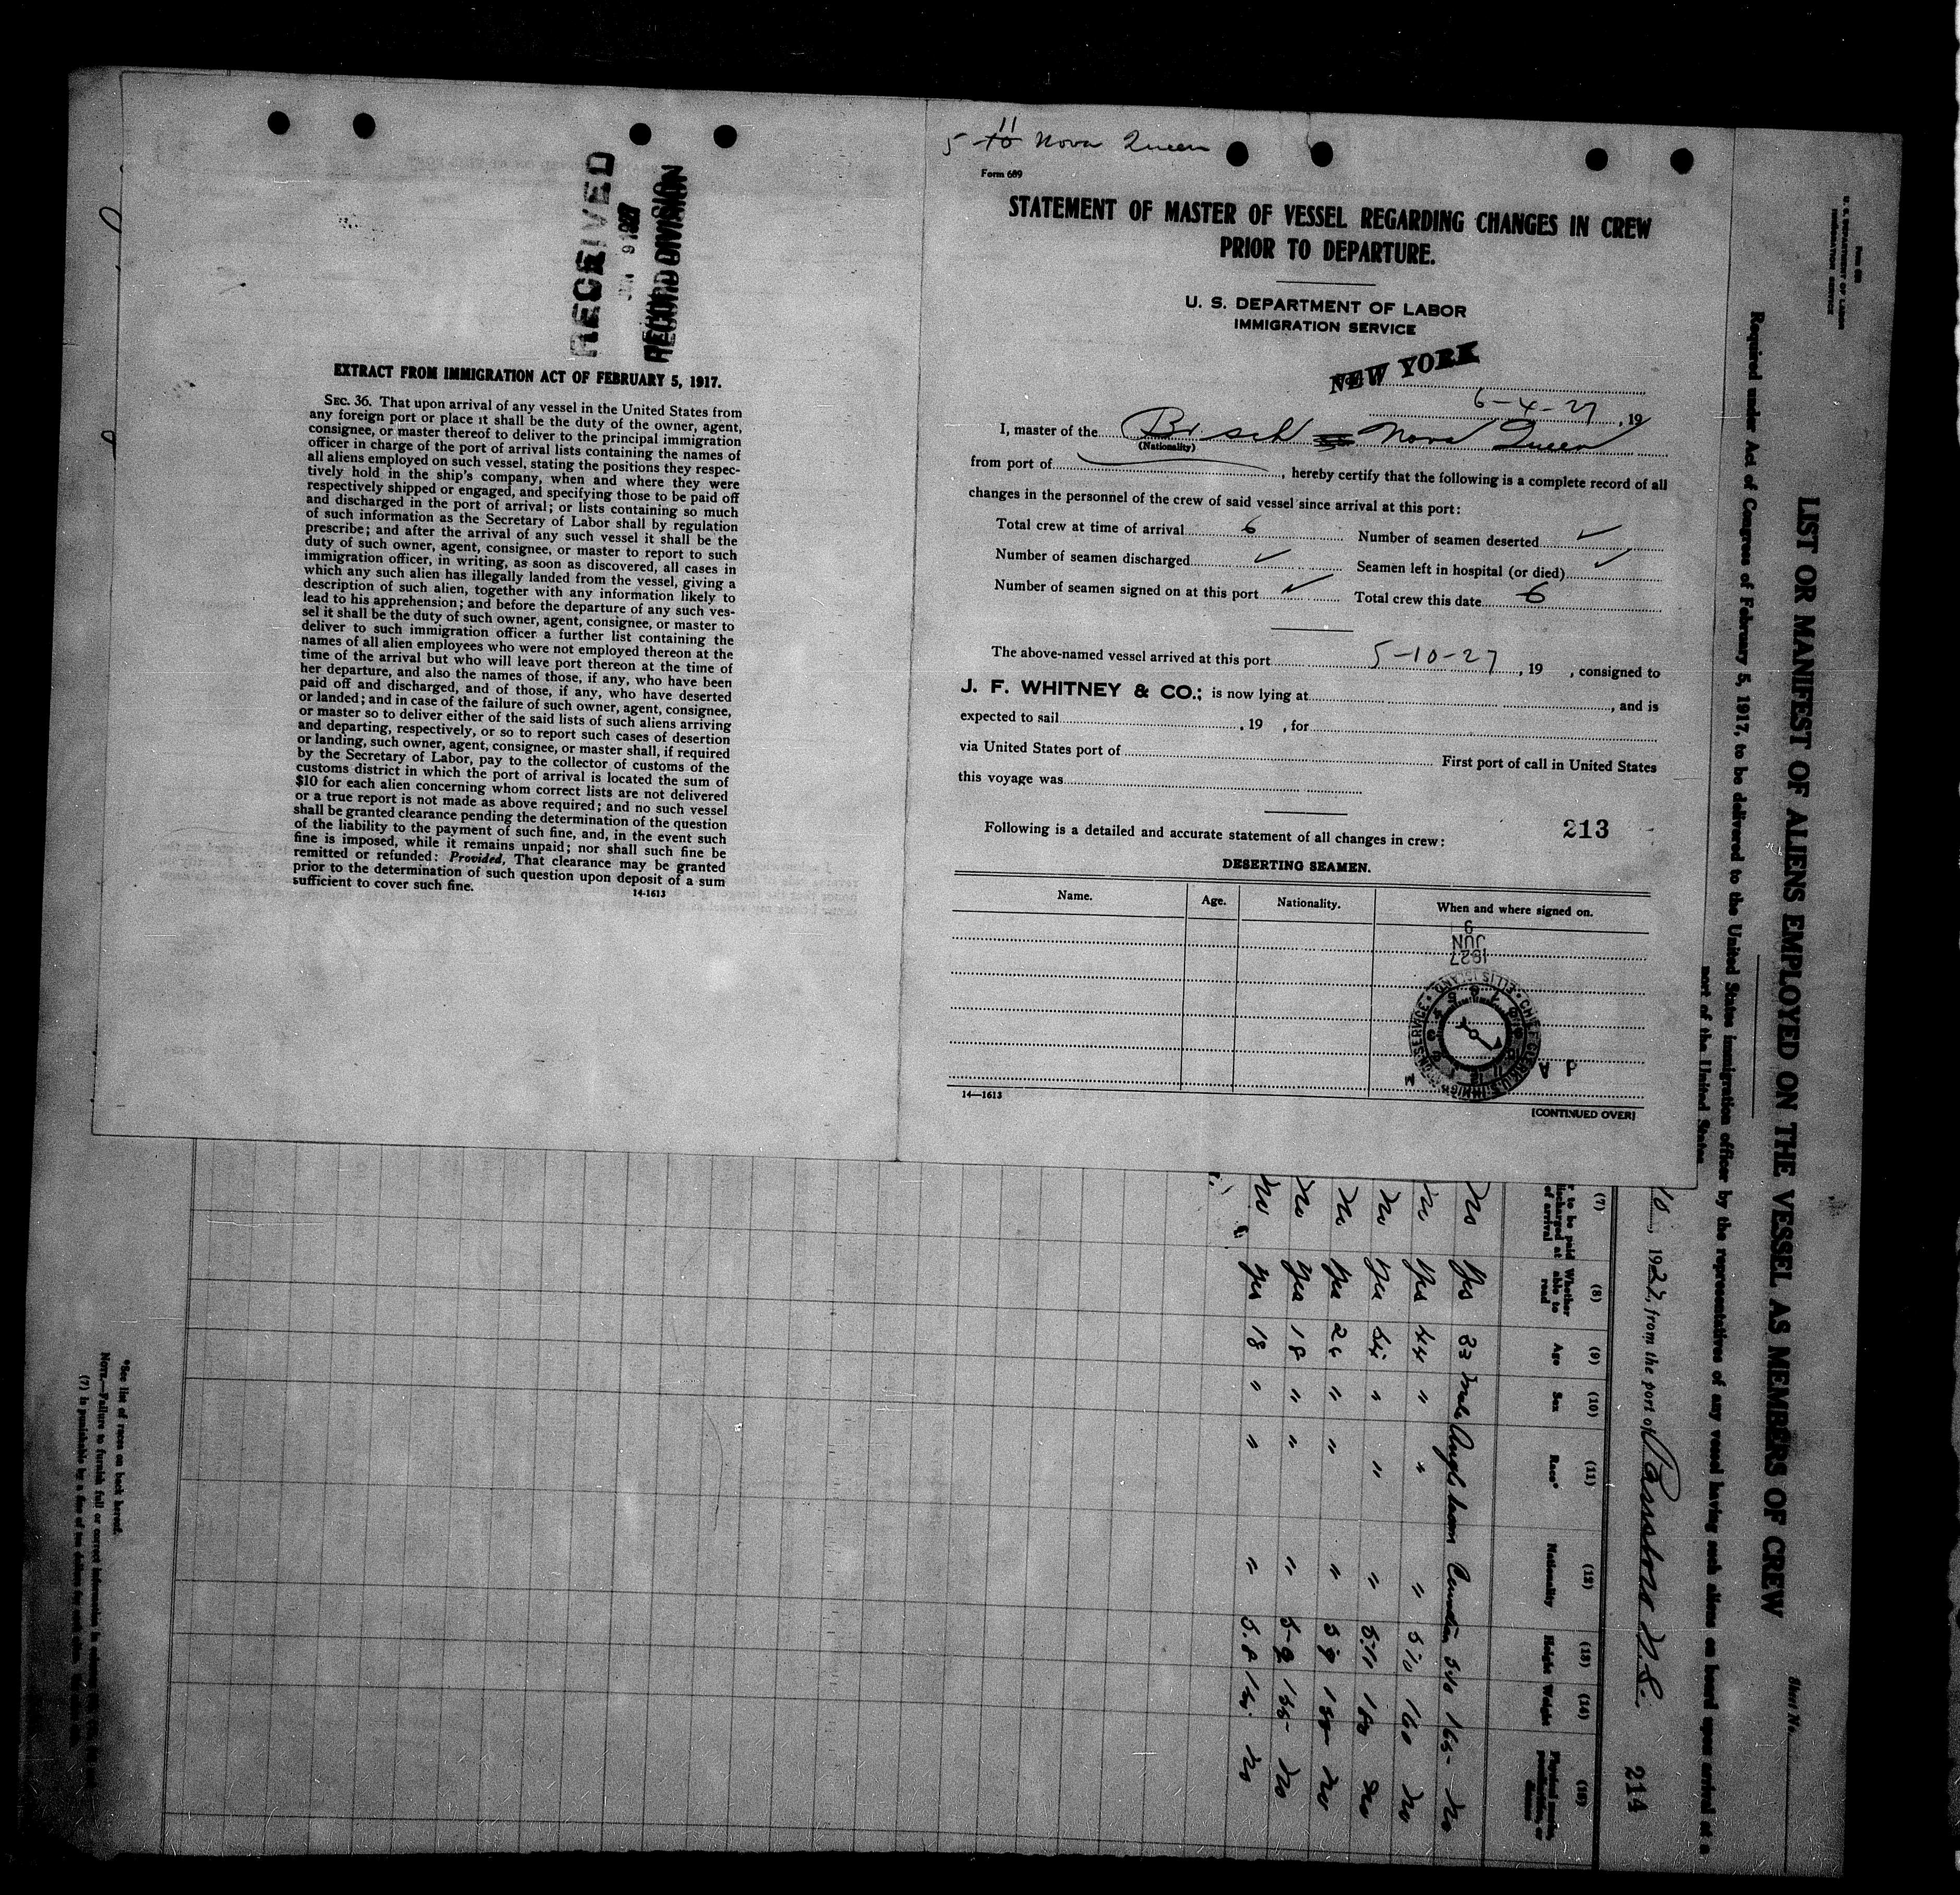 RECEIVED
9 1927
RECORD DIVISION
EXTRACT FROM IMMIGRATION ACT OF FEBRUARY 5, 1917.
SEC. 36. That upon arrival of any vessel in the United States from
any foreign port or place it shall be the duty of the owner, agent,
consignee, or master thereof to deliver to the principal immigration
officer in charge of the port of arrival lists containing the names of
all aliens employed on such vessel, stating the positions they respec-
tively hold in the ship's company, when and where they were
respectively shipped or engaged, and specifying those to be paid off
and discharged in the port of arrival; or lists containing so much
of such information as the Secretary of Labor shall by regulation
prescribe; and after the arrival of any such vessel it shall be the
duty of such owner, agent, consignee, or master to report to such
immigration officer, in writing, as soon as discovered, all cases in
which any such alien has illegally landed from the vessel, giving a
description of such alien, together with any information likely to
lead to his apprehension; and before the departure of any such ves-
sel it shall be the duty of such owner, agent, consignee, or master to
deliver to such immigration officer a further list containing the
names of all alien employees who were not employed thereon at the
time of the arrival but who will leave port thereon at the time of
her departure, and also the names of those, if any, who have been
paid off and discharged, and of those, if any, who have deserted
or landed; and in case of the failure of such owner, agent, consignee,
or master so to deliver either of the said lists of such aliens arriving
and departing, respectively, or so to report such cases of desertion
or landing, such owner, agent, consignee, or master shall, if required
by the Secretary of Labor, pay to the collector of customs of the
customs district in which the port of arrival is located the sum of
$10 for each alien concerning whom correct lists are not delivered
or a true report is not made as above required; and no such vessel
shall be granted clearance pending the determination of the question
of the liability to the payment of such fine, and, in the event such
fine is imposed, while it remains unpaid; nor shall such fine be
remitted or refunded: Provided, That clearance may be granted
prior to the determination of such question upon deposit of a sum
sufficient to cover such fine.
14-1613
11
5 10 Nova Queen
Form 689
STATEMENT OF MASTER OF VESSEL REGARDING CHANGES IN CREW
PRIOR TO DEPARTURE.
U. S. DEPARTMENT OF LABOR
IMMIGRATION SERVICE
NEW YORK
6-4-27, 19
I, master of the Br sch Nova Queen
(Nationality)
from port of , hereby certify that the following is a complete record of all
changes in the personnel of the crew of said vessel since arrival at this port:
Total crew at time of arrival 6 Number of seamen deserted ✓
Number of seamen discharged ✓ Seamen left in hospital (or died) ✓
Number of seamen signed on at this port ✓ Total crew this date 6
The above-named vessel arrived at this port 5-10-27, 19 , consigned to
J. F. WHITNEY & CO.; is now lying at , and is
expected to sail , 19 , for
via United States port of First port of call in United States
this voyage was
Following is a detailed and accurate statement of all changes in crew: 213
DESERTING SEAMEN.
Name. Age. Nationality. When and where signed on.
1927
JUN
9
CHIEF CLERK U.S. IMMIGRATION SERVICE • ELLIS ISLAND •
14—1613
[CONTINUED OVER]
U. S. DEPARTMENT OF LABOR
IMMIGRATION SERVICE
LIST OR MANIFEST OF ALIENS EMPLOYED ON THE VESSEL AS MEMBERS OF CREW
Sheet No.
Required under Act of Congress of February 5, 1917, to be delivered to the United States immigration officer by the representatives of any vessel having such aliens on board upon arrival at a
port of the United States
10, 1927, from the port of Parrsboro N.S. 214
(7) (8) (9) (10) (11) (12) (13) (14) (15)
to be paid discharged at of arrival Whether able to read Age Sex Race* Nationality Height Weight Physical marks, peculiarities, or disease
No Yes 33 Male 5 10 165 No
No Yes 44 " " " 5 10 160 No
No Yes " " " 5 11 180 No
No Yes " " " 5 9 No
No Yes 18 " " " 5-9 No
No Yes 18 " " " 5.8 No
*See list of races on back hereof.
NOTE.—Failure to furnish full or correct information in columns
(7) is punishable by a fine of ten dollars for each alien.